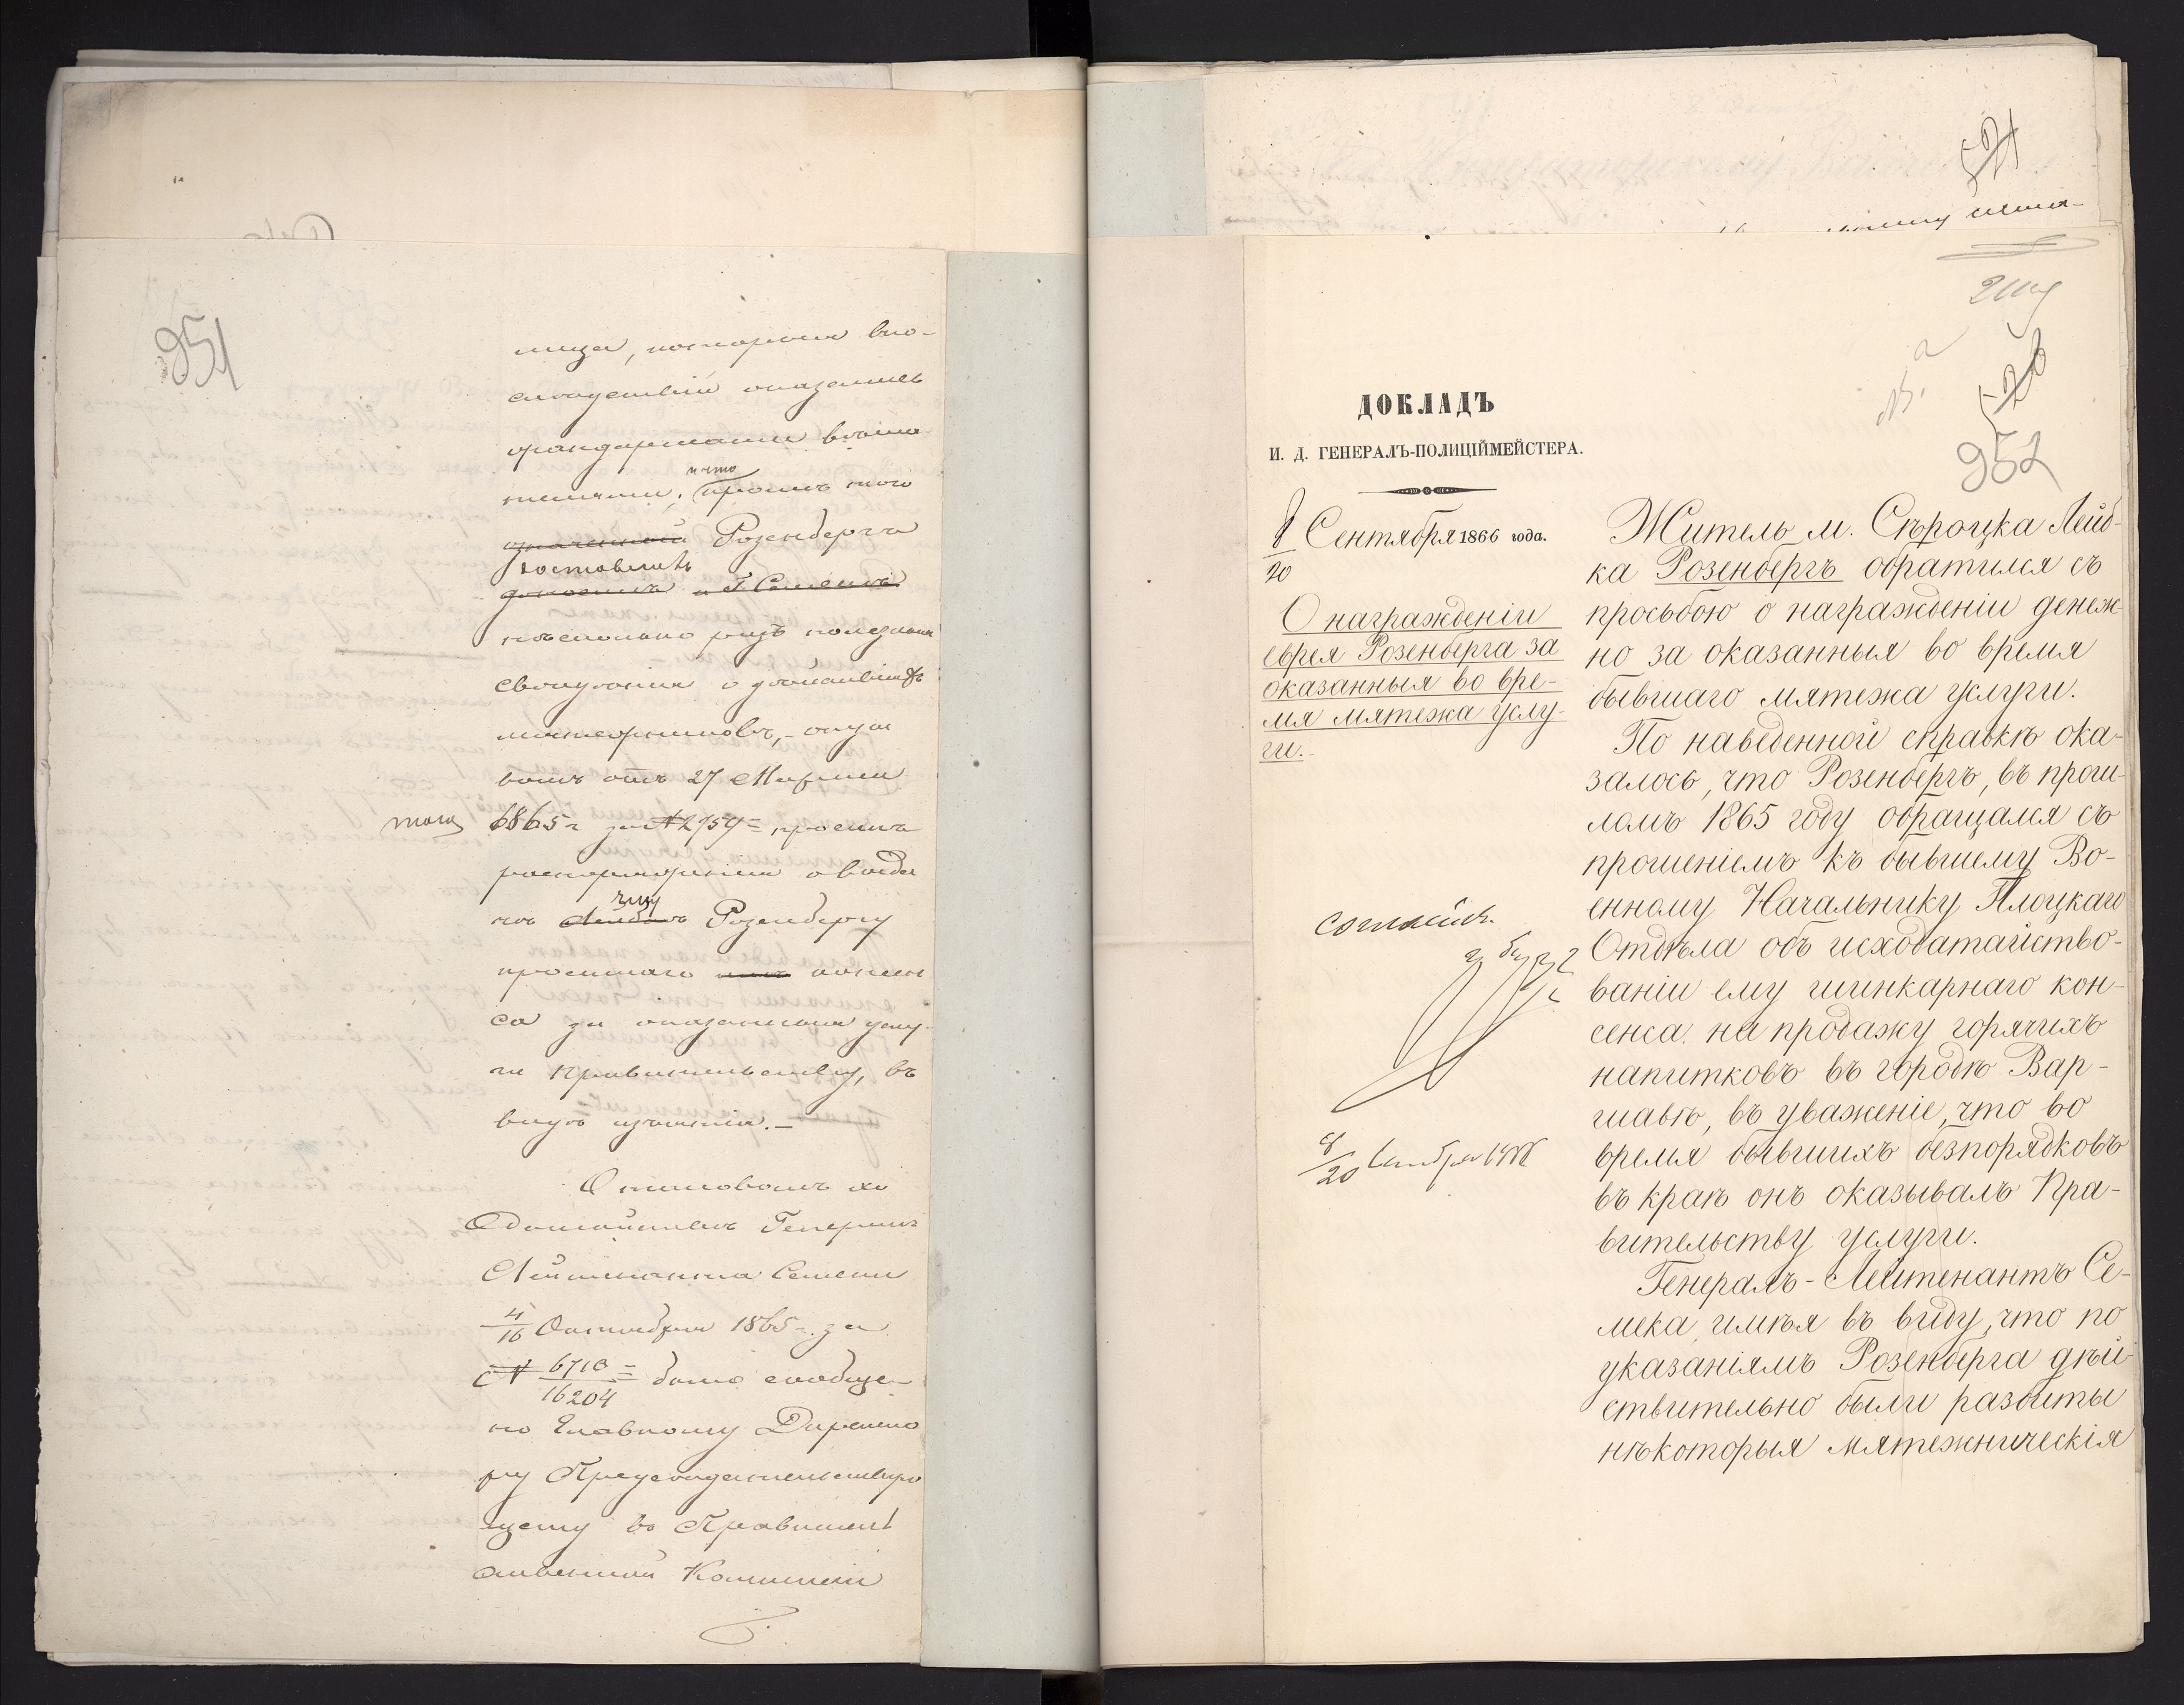 951
лица, которыя впо-
слѣдствіи оказались
жандармами вѣшате-
лями; и что кромѣ того
означенный Розенберга
доставилъ
доносилъ и Г. Семекѣ
нѣсколько разъ полезныя
свѣдѣнія о
мятежниковъ,
вомъ отъ 27 Марта
того 1865 г. за № 2759 = просилъ
распоряженія о выда-
чѣ Лейбѣ Розенбергу
просимаго консен-
са за оказанныя услу-
ги Правительству, въ
видѣ изъятія.—
О таковомъ хо-
датайствѣ Генералъ
Лейтенанта Семеки
4/16 Октября 1865 г. за
№ 6710/16204 = было сообще-
но Главному Директо-
ру Предсѣдательствую-
щему въ Правитель-
ственной Коммисіи
521
952
ДОКЛАДЪ
И. Д. ГЕНЕРАЛЪ-ПОЛИЦІЙМЕЙСТЕРА.
8/20 Сентября 1866 года.
О награжденіи
еврея Розенберга за
оказанныя во вре-
мя мятежа услу-
ги.
согласенъ.
8/20 Сентября 1866
Житель м. Сѣроцка Лейб-
ка Розенбергъ обратился съ
просьбою о награжденіи денеж-
но за оказанныя во время
бывшаго мятежа услуги.
По наведенной справкѣ ока-
залось, что Розенбергъ, въ прош-
ломъ 1865 году обращался съ
прошеніемъ къ бывшему Во-
енному Начальнику Плоцкаго
Отдѣла объ исходатайство-
ваніи ему шинкарнаго кон-
сенса на продажу горячихъ
напитковъ въ городѣ Вар-
шавѣ, въ уваженіе, что во
время бывшихъ безпорядковъ
въ краѣ онъ оказывалъ Пра-
вительству услуги.
Генералъ-Лейтенантъ Се-
мека, имѣя въ виду, что по
указаніямъ Розенберга дѣй-
ствительно были разбиты
нѣкоторыя мятежническія